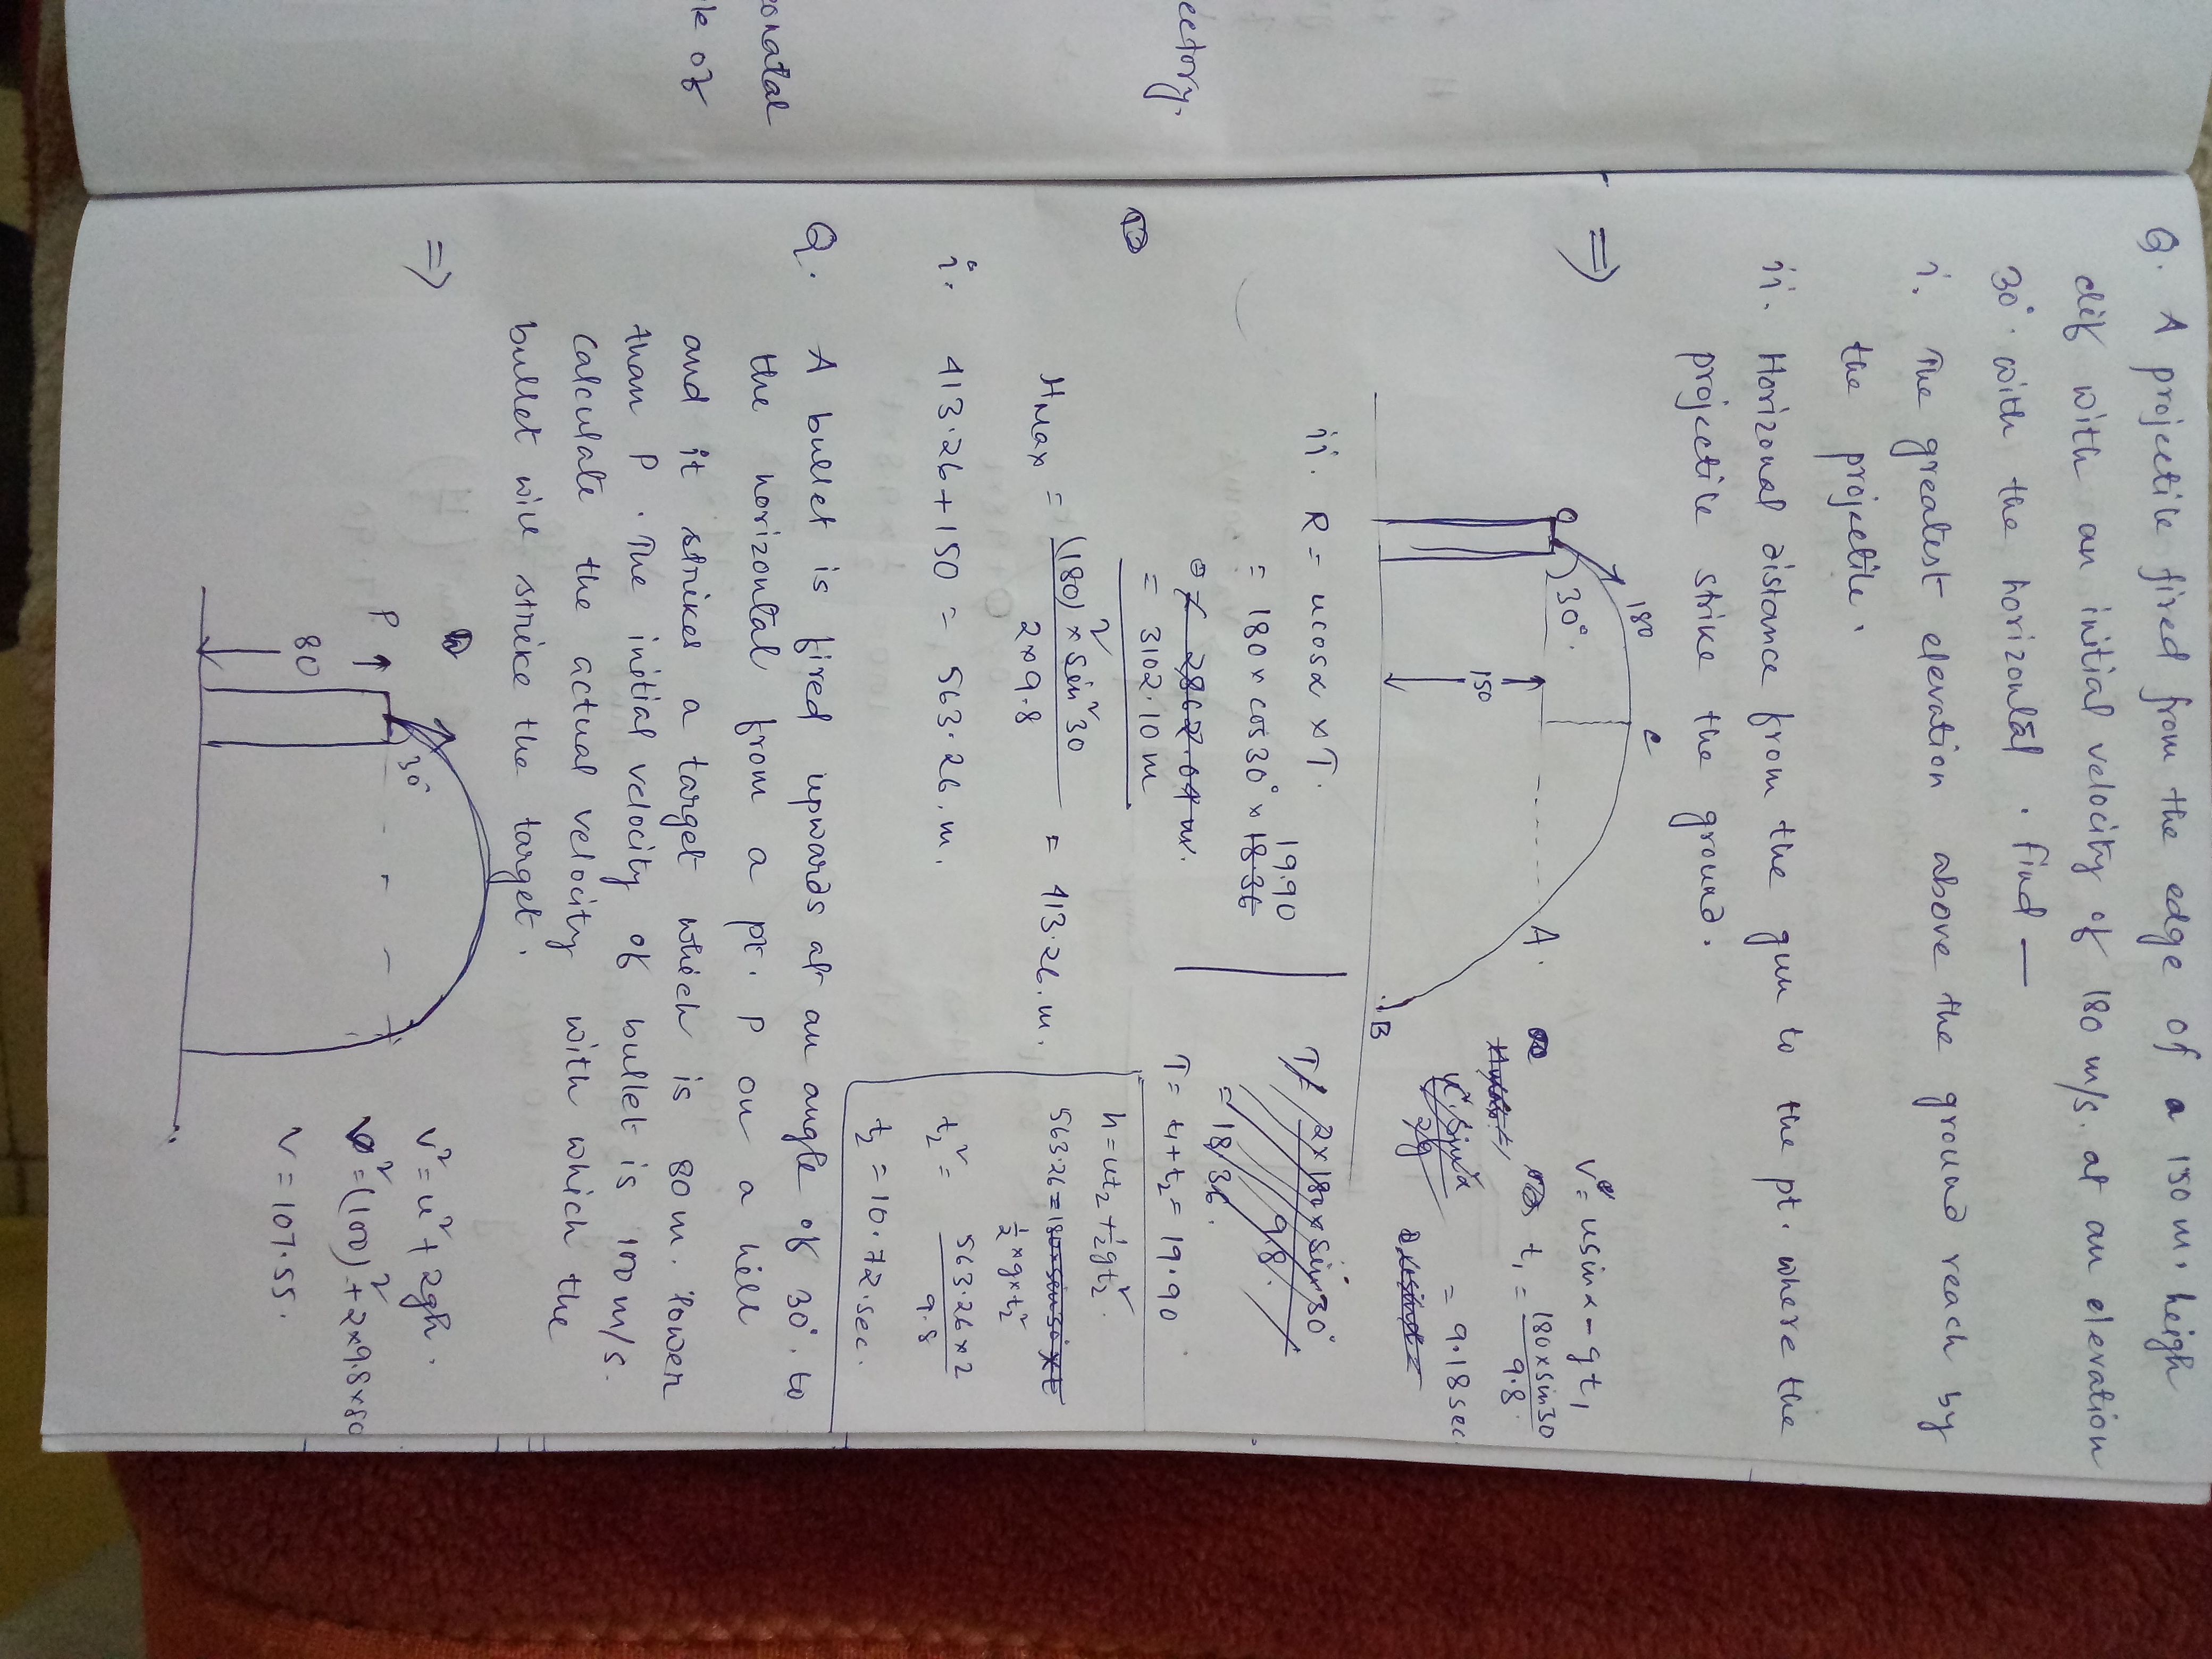 Q. A projectile fired from the edge of a 150 m. heigh
clif with an initial velocity of 180 m/s. at an elevation
30° with the horizontal. find —
i. The greatest elevation above the ground reach by
the projectile.
ii. Horizonal distance from the gun to the pt. where the
projectile strike the ground.
⇒
180
C
30°.
A.
150
B
V = usinα - gt₁
t₁ = 180×sin30 / 9.8
u² sin²α / 2g
= 9.18 sec
ii. R = ucosα × T.
19.90
= 180 × cos30° × 18.36
= 2862.04 m.
= 3102.10 m
T = 2×180×sin30° / 9.8.
= 18.36.
T = t₁+t₂ = 19.90
h = ut₂ + ½gt₂².
563.26 = 180×sin30°×t
½×g×t₂²
t₂² = 563.26×2 / 9.8
t₂ = 10.72.sec.
H Max = (180)² × sin²30 / 2×9.8 = 413.26.m.
i. 413.26+150 = 563.26.m.
Q. A bullet is fired upwards at an angle of 30°. to
the horizontal from a pt. P on a hill
and it strikes a target which is 80 m. lower
than P. The initial velocity of bullet is 100 m/s.
Calculate the actual velocity with which the
bullet will strike the target.
⇒
30°
P
80
v² = u² + 2gh.
v² = (100)² + 2×9.8×80
V = 107.55.
ectory.
onatal
le of